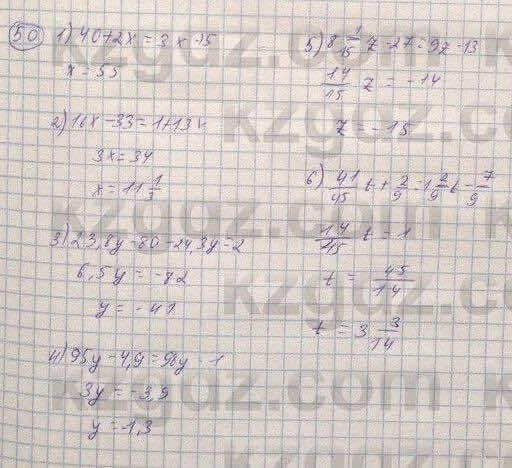 50
1) 40+2x = 3x-15
x = 55
2) 16x-33=1+13x
3x=34
x=11 1/3
3) 23,8y-80=24,3y-2
6,5y = -82
y = -41
4) 95y-4,9=96y-1
3y = -3,9
y = -1,3
5) 8 1/15 z-27=9z-13
14/15 z = -14
z = -15
6) 41/45 t+2/9=1 2/9 t-7/9
14/45 t = 1
t = 45/14
t = 3 3/14
kzgdz.com